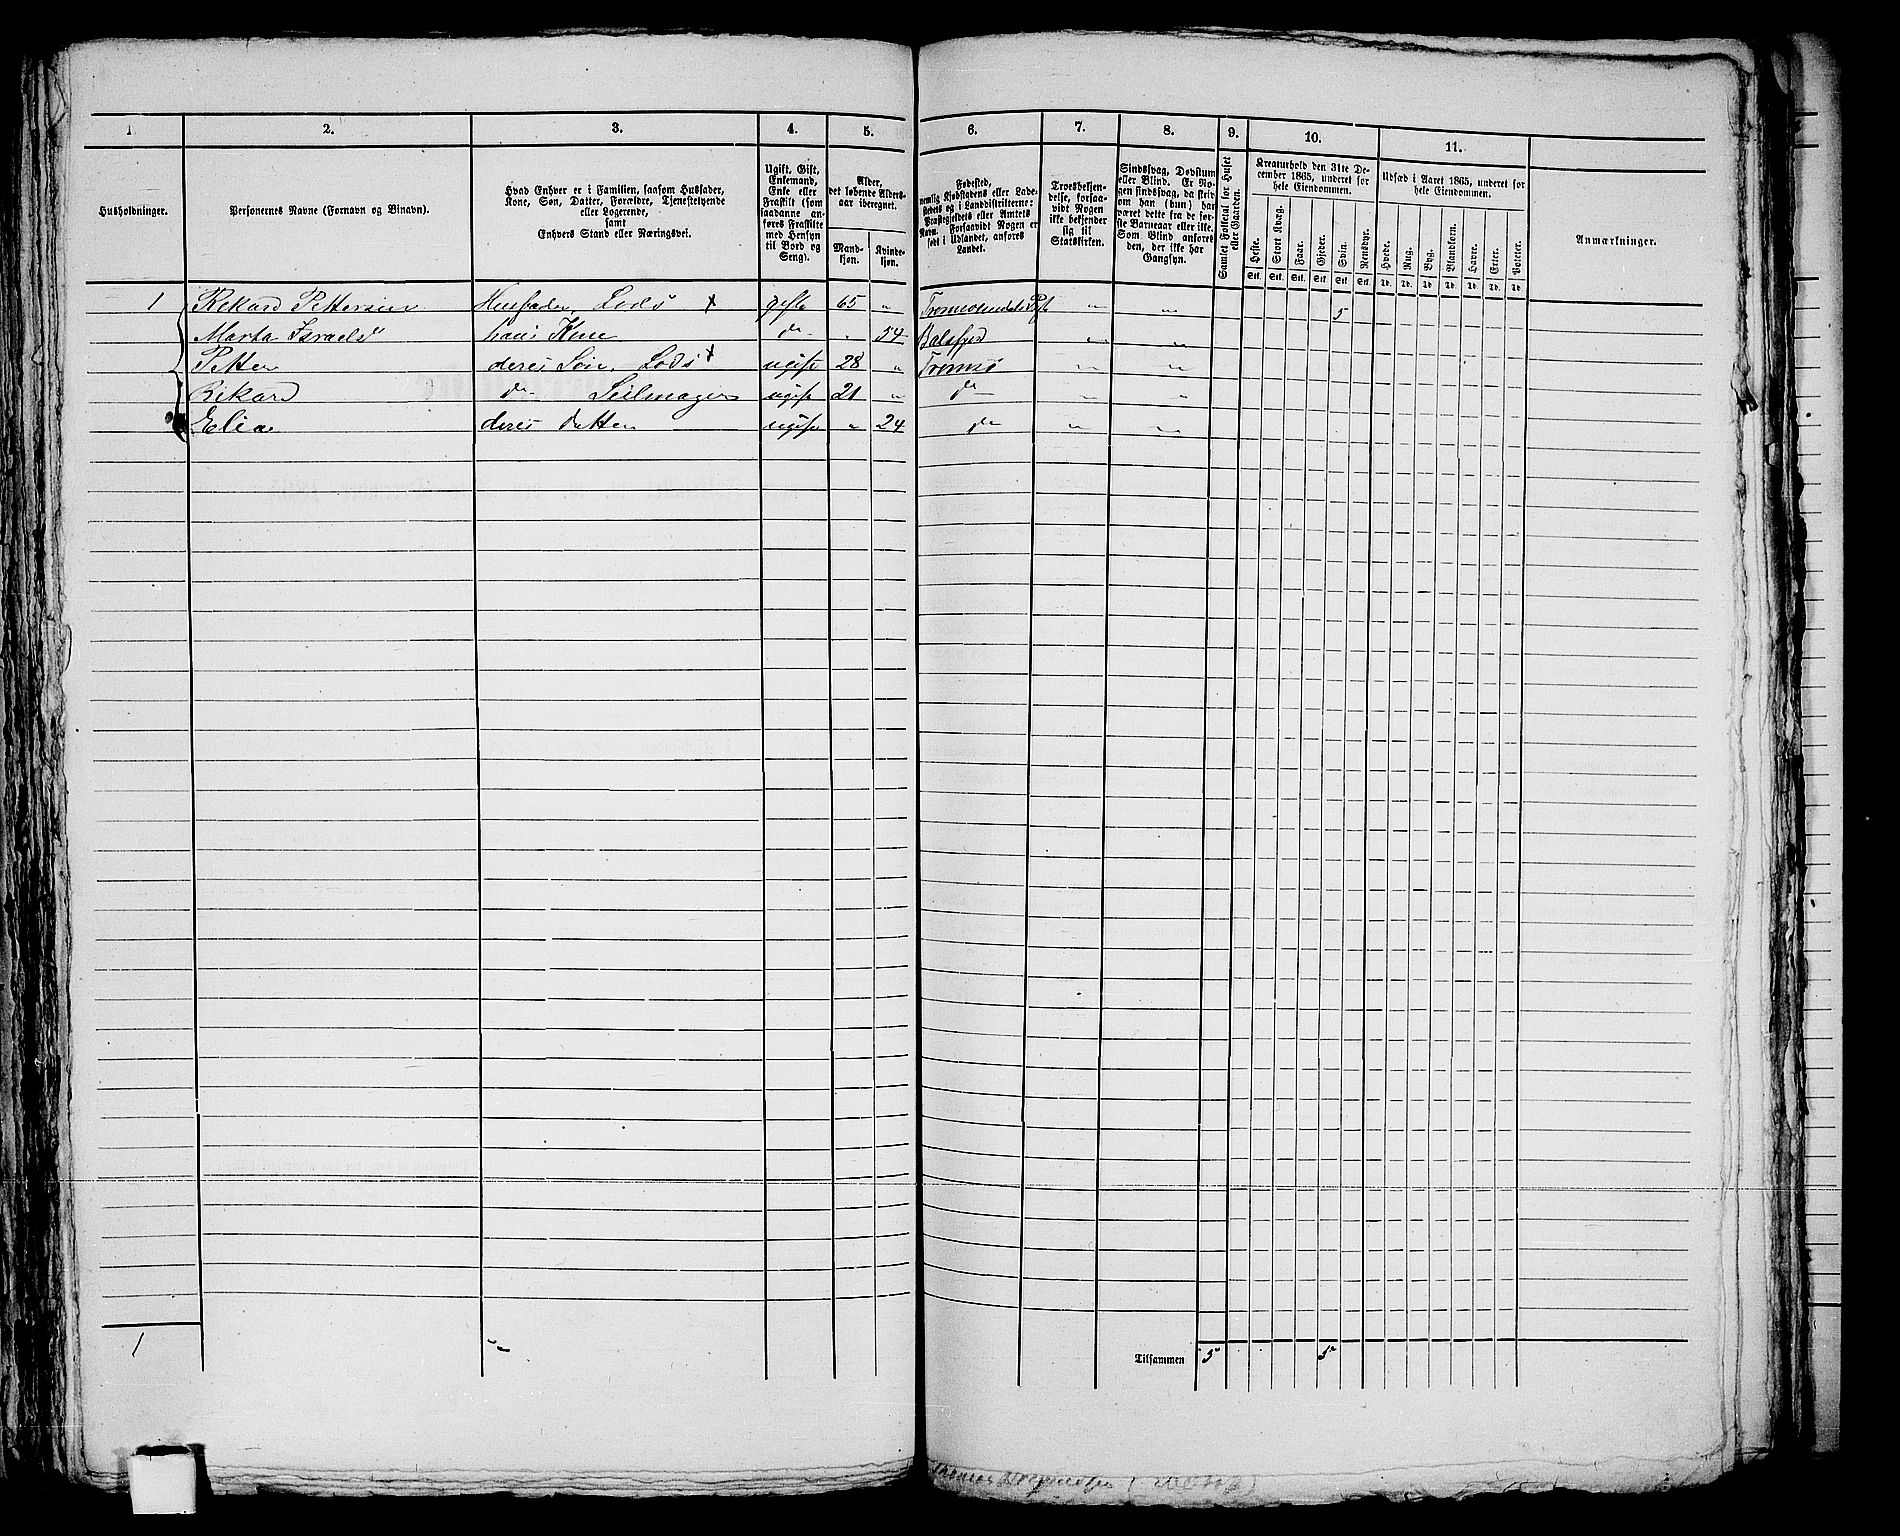 1 2. 3. 4. 5. 6. 7. 8. 9. 10. 11.
Husholdninger.
Personernes Navne (Fornavn og Binavn).
Hvad Enhver er i Familien, saasom Husfader,
Kone, Søn, Datter, Forældre, Tjenestetyende
eller Logerende,
samt
Enhvers Stand eller Næringsvei.
Ugift, Gift,
Enkemand,
Enke eller
Fraskilt (som
saadanne an-
føres Fraskilte
med Hensyn
til Bord og
Seng).
Alder,
det løbende Alders-
aar iberegnet.
Mand-
kjøn.
Kvinde-
kjøn.
Fødested,
nemlig Kjøbstadens eller Lade-
stedets og i Landdistrikterne:
Præstegjeldets eller Amtets
Navn. Forsaavidt Nogen er
født i Udlandet, anføres
Landet.
Troesbekjen-
delse, forsaa-
vidt Nogen
ikke bekjender
sig til
Statskirken.
Sindssvag, Døvstum
eller Blind. Er No-
gen sindssvag, da skriv
om han (hun) har
været dette fra de før-
ste Barneaar eller ikke.
Som Blind anføres
den, der ikke har
Gangsyn.
Samlet Folketal for Huset
eller Gaarden.
Kreaturhold den 31te De-
cember 1865, underet for
hele Eiendommen.
Heste. Stort Kvæg. Faar. Gjeder. Svin. Rensdyr.
Stk. Stk. Stk. Stk. Stk. Stk.
Udsæd i Aaret 1865, underet for
hele Eiendommen.
Hvede. Rug. Byg. Blandkorn. Havre. Erter. Poteter.
Td. Td. Td. Td. Td. Td. Td.
Anmærkninger.
1 Rikard Pettersen Husfader, Lods x gifte 65 " Tromsøsundets Pgl " " 5
Marta Israels" hans Kone do " 54 Balsfjord " "
Petter deres Søn, Lods x ugift 28 " Tromsø " "
Rikard do Seilmager ugift 21 " do " "
Elia deres Datter ugift " 24 do " "
1 Tilsammen 5 5